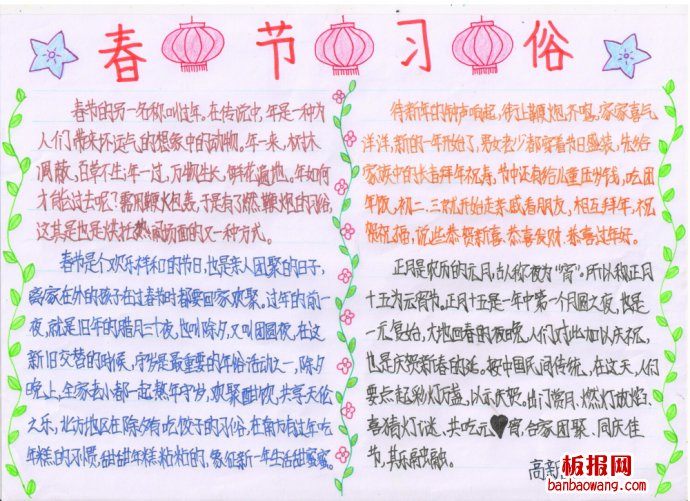 春节习俗
春节的另一名称叫过年。在传说中,年是一种为
人们带来坏运气的想象中的动物。年一来,树木
凋蔽,百草不生;年一过,万物生长,鲜花遍地。年如何
才能过去呢?需用鞭火包轰,于是有了燃鞭炮的习俗,
这其是也是烘托热闹场面的又一种方式。
春节是个欢乐祥和的节日,也是亲人团聚的日子,
离家在外的孩子在过春节时都要回家欢聚。过年的前一
夜,就是旧年的腊月三十夜,也叫除夕,又叫团圆夜,在这
新旧交替的时候,守岁是最重要的年俗活动之一,除夕
晚上,全家老小都一起熬年守岁,欢聚酣饮,共享天伦
之乐,北方地区在除夕有吃饺子的习俗,在南方有过年吃
年糕的习惯,甜甜年糕粘粘的,象征新一年生活甜蜜蜜。
待新年的钟声响起,街上鞭炮齐鸣,家家喜气
洋洋,新的一年开始了,男女老少都穿着节日盛装,先给
家族中的长者拜年祝寿,节中还有给儿童压岁钱,吃团
年饭,初二、三就开始走亲戚看朋友,相互拜年,祝
贺祝福,说些恭贺新喜、恭喜发财、恭喜过年好。
正月是农历的元月,古人称夜为“宵”。所以称正月
十五为元宵节。正月十五是一年中第一个月圆之夜,也是
一元复始,大地回春的夜晚,人们对此加以庆祝,
也是庆贺新春的延。按中国民间传统,在这天,人们
要点起彩灯万盏,以示庆贺。出门赏月、燃灯放焰、
喜猜灯谜、共吃元宵,合家团聚、同庆佳
节,其乐融融。
高新
板报网
banbaowang.com